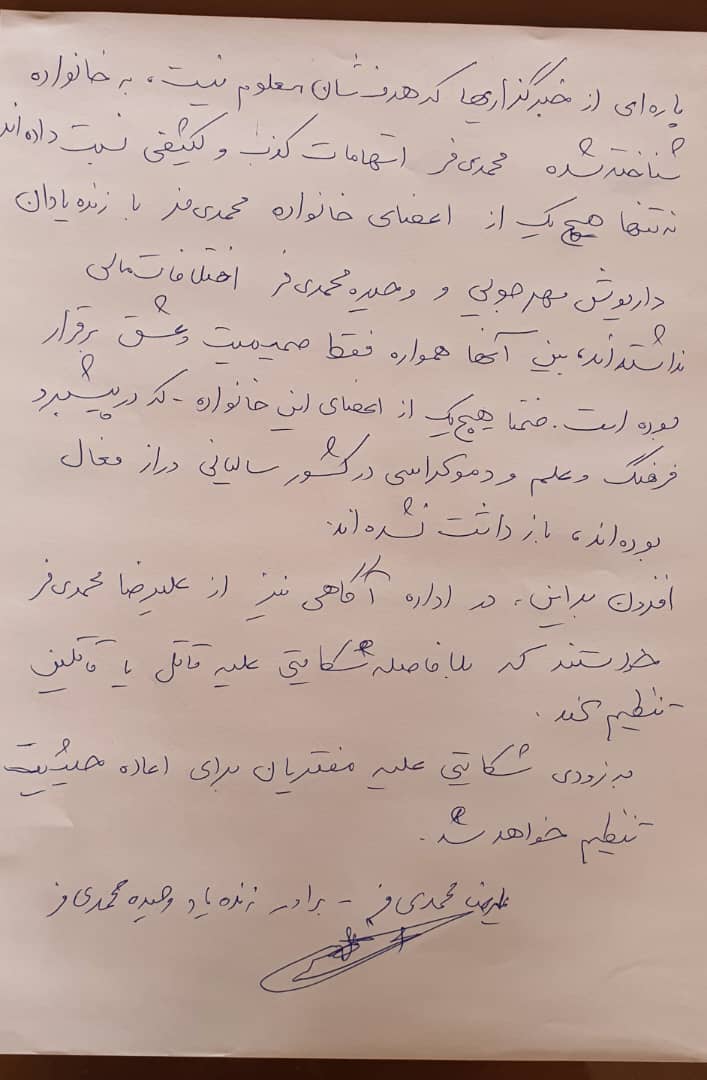 پاره‌ای از خبرگزاریها که هدفشان معلوم نیست، به خانواده
شناخته‌شده محمدی‌فر اتهامات کذب و کثیفی نسبت داده‌اند
نه‌تنها هیچ‌یک از اعضای خانواده محمدی‌فر با زنده‌یادان
داریوش مهرجویی و وحیده محمدی‌فر اختلافات مالی
نداشته‌اند، بین آنها همواره فقط صمیمیت و عشق برقرار
بوده است. ضمنا هیچ‌یک از اعضای این خانواده - که در پیشبرد
فرهنگ و علم و دموکراسی در کشور سالیانی دراز فعال
بوده‌اند، بازداشت نشده‌اند.
افزون براین، در اداره آگاهی نیز از علیرضا محمدی‌فر
خواستند که بلافاصله شکایتی علیه قاتل یا قاتلین
تنظیم کند.
به زودی شکایتی علیه مفتریان برای اعاده حیثیت
تنظیم خواهد شد.
علیرضا محمدی‌فر - برادر زنده یاد وحیده محمدی‌فر